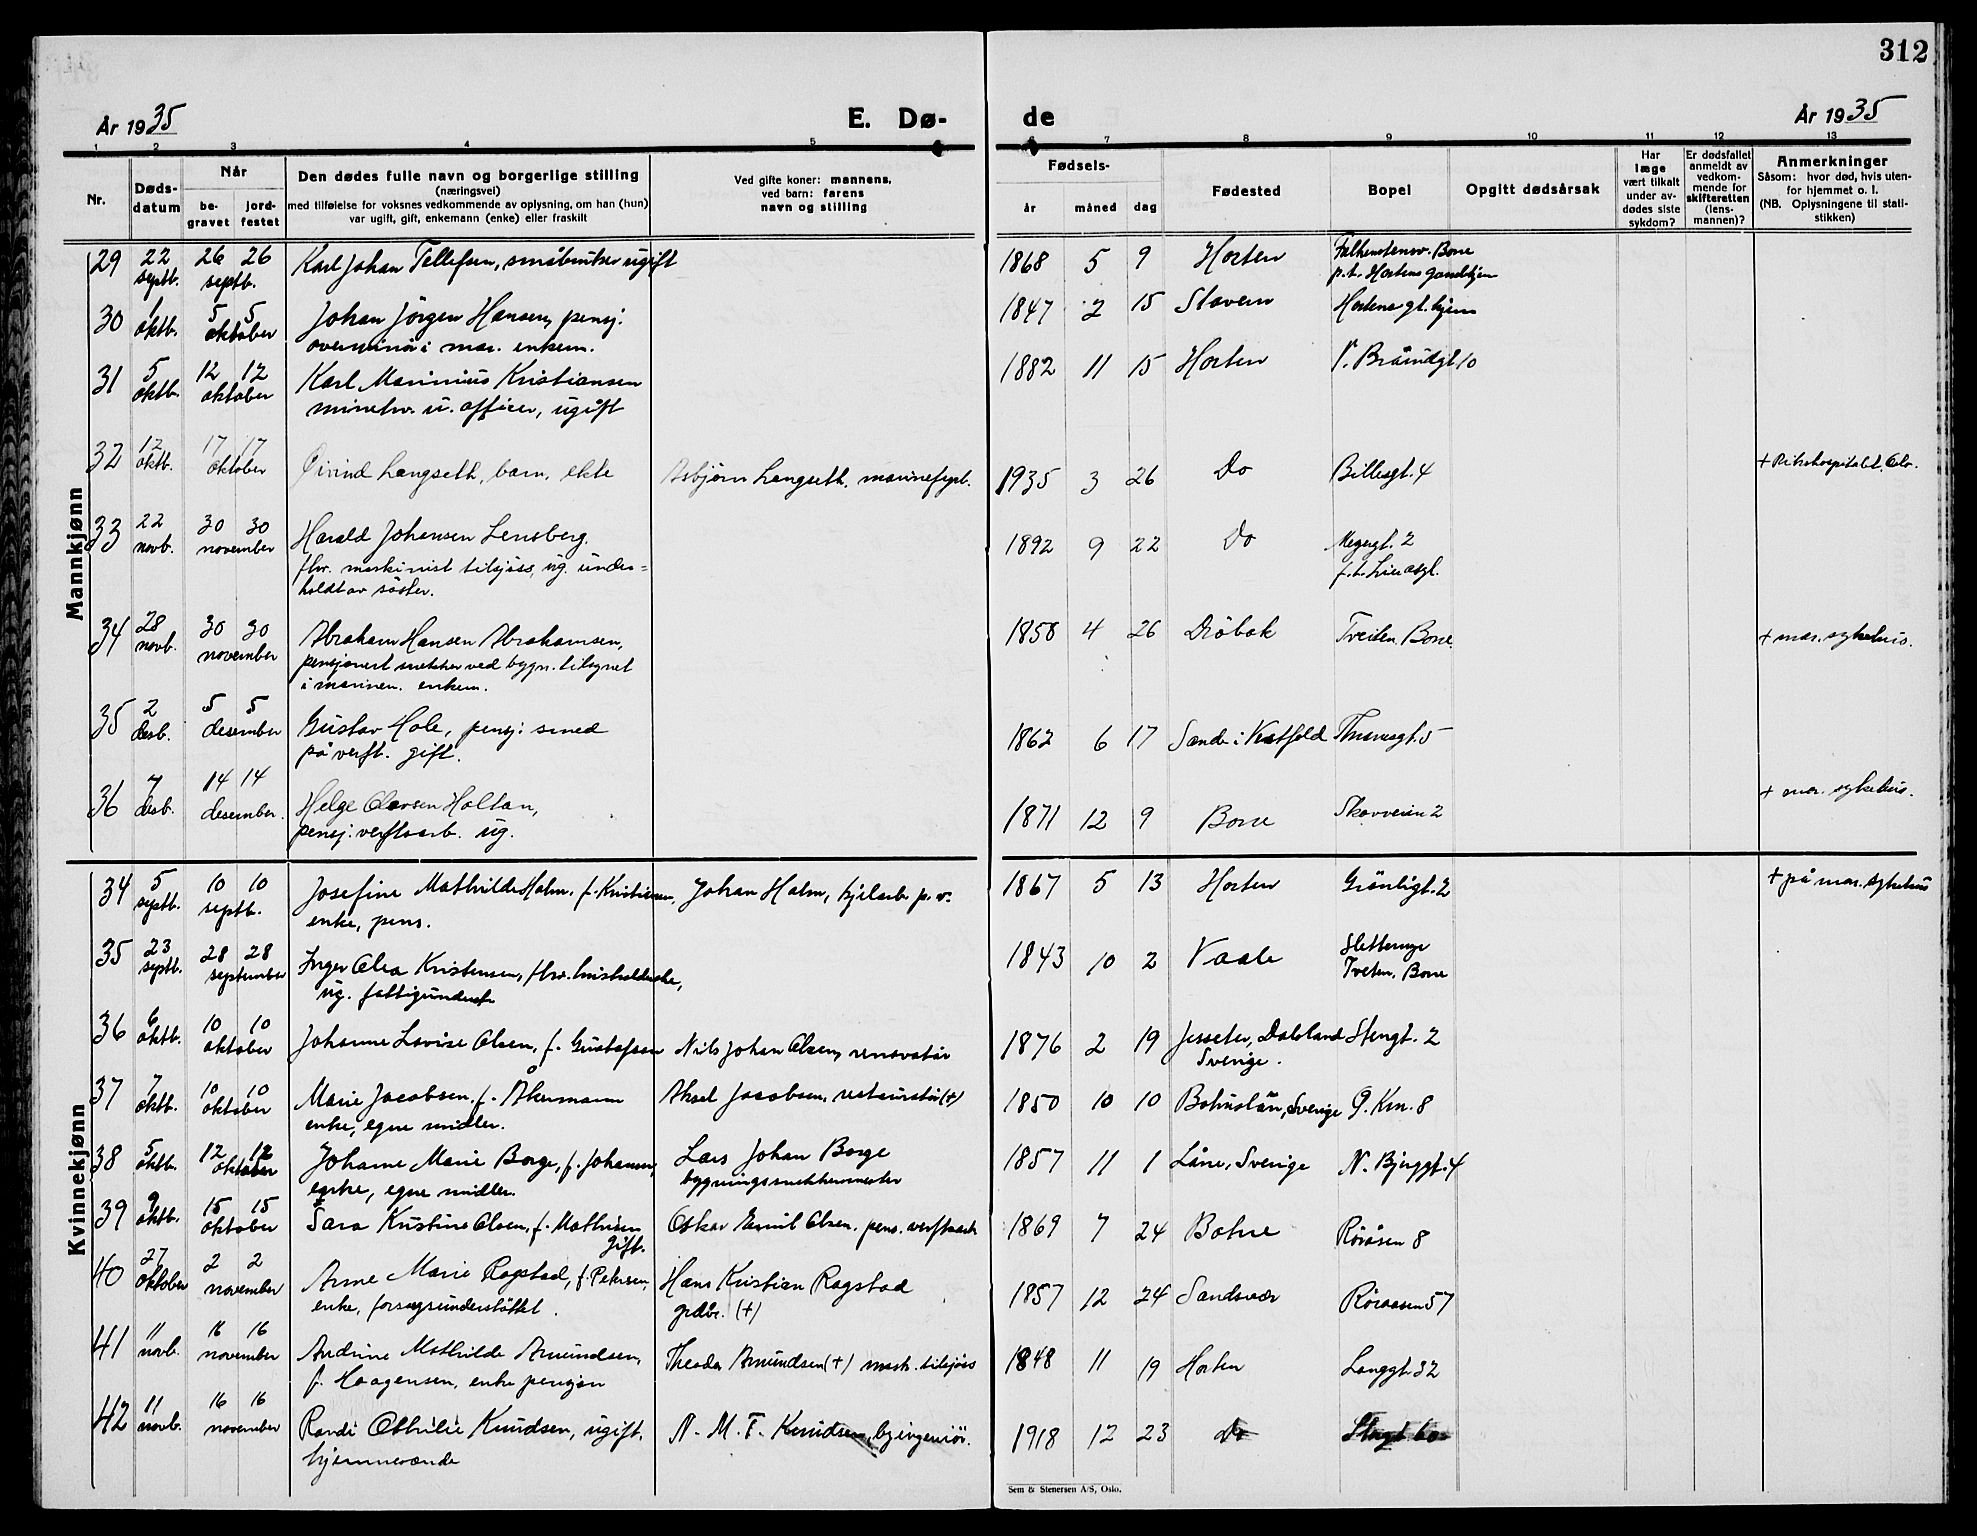 312
År 1935
E. Dø-
de
År 1935
1 2 3 4 5 6 7 8 9 10 11 12 13
Nr.
Døds-
datum
Når
be-
gravet
jord-
festet
Den dødes fulle navn og borgerlige stilling
(næringsvei)
med tilføielse for voksnes vedkommende av oplysning, om han (hun)
var ugift, gift, enkemann (enke) eller fraskilt
Ved gifte koner: mannens,
ved barn: farens
navn og stilling
Fødsels-
år måned dag
Fødested
Bopel
Opgitt dødsårsak
Har
læge
vært tilkalt
under av-
dødes siste
sykdom?
Er dødsfallet
anmeldt av
vedkom-
mende for
skifteretten
(lens-
mannen)?
Anmerkninger
Såsom: hvor død, hvis uten-
for hjemmet o. l.
(NB. Oplysningene til stati-
stikken)
Mannkjønn
29 22 26 26 Karl Johan Tellefsen, småbruker ugift 1868 5 9 Horten Falkenstensv. Borre
septb. septb. p.t. Hortens gamlehjem
30 1 5 5 Johan Jörgen Hansen, pensj. 1847 2 15 Stavern Hortens gl. hjem
oktb. oktober i mar. enkem.
31 5 12 12 Karl Marinius Kristiansen 1882 11 15 Horten V. Bråndgt 10
oktb. oktober minetv. u. officer, ugift
32 12 17 17 Öivind Langseth, barn, ekte Asbjörn Langseth, marinefyrb. 1935 3 26 Do Billesgt. 4 + Rikshospitalet, Oslo.
oktb. oktober
33 22 30 30 Harald Johansen Lensberg, 1892 9 22 Do Megergt. 2
novb. november fhv. maskinist tilsjøss, ug. under=
holdt av söster.
34 28 30 30 Abraham Hansen Abrahamsen, 1858 4 26 Dröbak Tveiten, Borre. + mar. sykehus.
novb. november pensjonert snekker ved bygn. tilsynet
i marinen. enkem.
35 2 5 5 Gustav Hole, pensj. smed 1862 6 17 Sande i Vestfold
desb. desember på verft. gift.
36 7 14 14 Helge Olavsen Holtan, 1871 12 9 Borre Skovveien 2 + mar. sykehus.
desb. desember. pensj. verftsarb. ug.
Kvinnekjønn
34 5 10 10 Josefine Mathilde Holm, f. Kristiansen, Johan Holm, kjelarb. p. v. 1867 5 13 Horten Grönligt. 2 + på mar. sykehus
septb. septb. enke, pens.
35 23 28 28 Inger Olea Kristensen, fhv. husholderske, 1843 10 2 Vaale Sletternge
septb. september ug. fattigunderst. Tveten, Borre
36 6 10 10 Johanne Lovise Olsen, f. Gustafsson Nils Johan Olsen, renovatör 1876 2 19 Jesseter, Dalsland Stengt. 2
oktb. oktober Sverige.
37 7 10 10 Marie Jacobsen, f. Åkermann Aksel Jacobsen, restauratör (+) 1850 10 10 Bohuslän, Sverige
oktb. oktober enke, egne midler.
38 5 12 12 Johanne Marie Borge, f. Johansen, Lars Johan Borge 1857 11 1 Låne, Sverige N. Bjerggt. 4
oktb. oktober enke, egne midler. bygningssnekkermester
39 9 15 15 Sara Kristine Olsen, f. Mathisen Oskar Emil Olsen, pens. verftsarb. 1869 7 24 Botne Röråsen 8
oktb. oktober gift.
40 27 2 2 Anne Marie Rogstad, f. Petersen, Hans Kristian Rogstad 1857 12 24 Sandsvær Röraasen 57
oktober november enke, forsorgsunderstöttet. grdbr. (+)
41 11 16 16 Andrine Mathilde Amundsen, Theodor Amundsen (+) mask. tilsjöss 1848 11 19 Horten Langgt 32
novb. november f. Haagensen, enke pensjon
42 11 16 16 Randi Othilie Knudsen, ugift. N. M. F. Knudsen, byingeniör. 1918 12 23 Do
novb. november hjemmeværende
Sem & Stenersen A/S, Oslo.